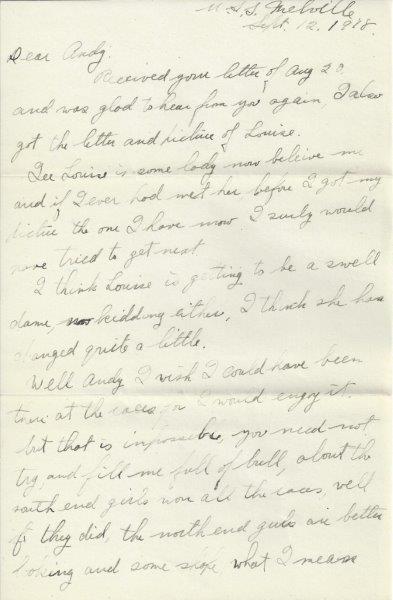 U.S.S. Melville
Sept. 12, 1918.
Dear Andy.
Received your letter of Aug 20,
and was glad to hear from you again, I also
got the letter and picture of Louise.
Gee Louise is some lady now beleive me
and if I ever had met her, before I got my
picture the one I have now I surly would
have tried to get next.
I think Louise is getting to be a swell
dame, no kidding either, I think she has
changed quite a little.
Well Andy I wish I could have been
there at the races for I would enjoy it.
but that is impossible, you need not
try and fill me full of bull, about the
south end girls won all the races, well
if they did, the north end girls are better
looking and some shape what I mean